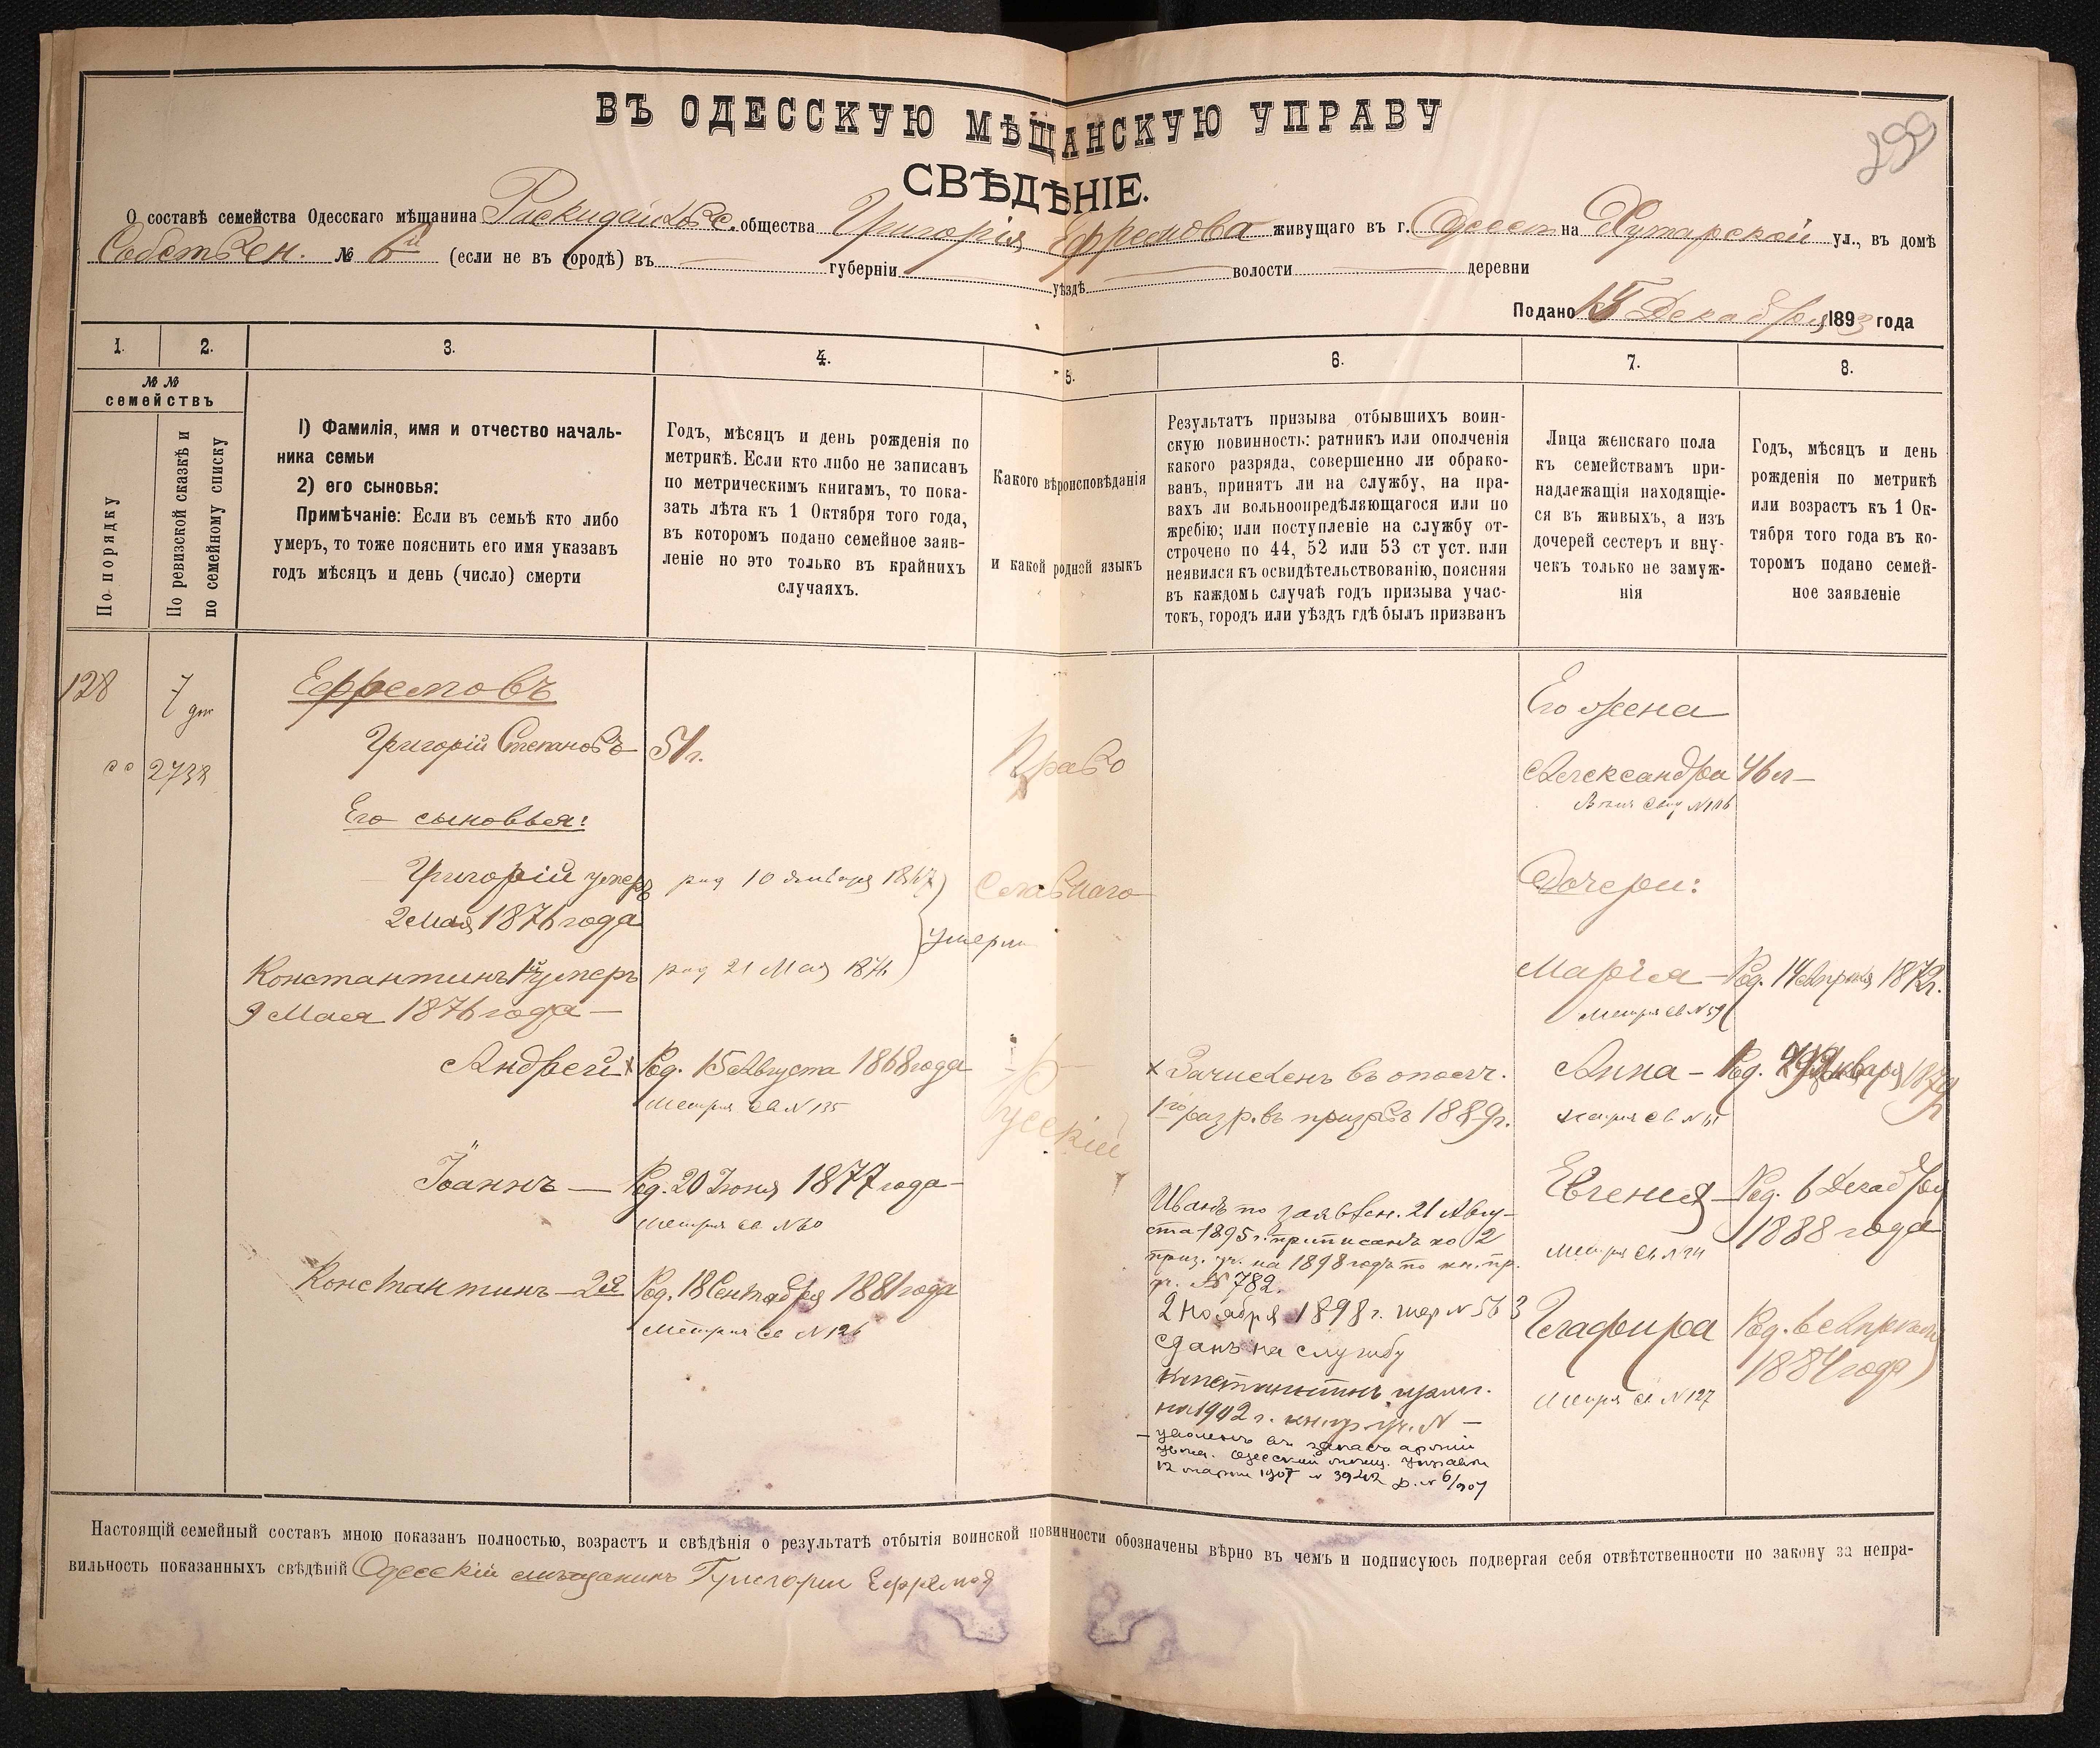 299
ВЪ ОДЕССКУЮ МѢЩАНСКУЮ УПРАВУ
СВѢДѢНІЕ.
О составѣ семейства Одесскаго мѣщанина общества Григорія Ефремова живущаго въ г. Одессѣ на Хуторской ул., въ домѣ
Собствен. № 6й (если не въ городѣ) въ губерніи уѣздѣ волости деревни
Подано 15 Декабря 1893 года
1. 2. 3. 4. 5. 6. 7. 8.
№ № семействъ
По порядку
По ревизской сказкѣ и
по семейному списку
1) Фамилія, имя и отчество началь-
ника семьи
2) его сыновья:
Примѣчаніе: Если въ семьѣ кто либо
умеръ, то тоже пояснить его имя указавъ
годъ мѣсяцъ и день (число) смерти
Годъ, мѣсяцъ и день рожденія по
метрикѣ. Если кто либо не записанъ
по метрическимъ книгамъ, то пока-
зать лѣта къ 1 Октября того года,
въ которомъ подано семейное заяв-
леніе но это только въ крайнихъ
случаяхъ.
Какого вѣроисповѣданія
и какой родной языкъ
Результатъ призыва отбывшихъ воин-
скую повинность: ратникъ или ополченія
какого разряда, совершенно ли обрако-
ванъ, принятъ ли на службу, на пра-
вахъ ли вольноопредѣляющагося или по
жребію; или поступленіе на службу от-
строчено по 44, 52 или 53 ст уст. или
неявился къ освидѣтельствованію, поясняя
въ каждомь случаѣ годъ призыва учас-
токъ, городъ или уѣздъ гдѣ былъ призванъ
Лица женскаго пола
къ семействамъ при-
надлежащія находящіе-
ся въ живыхъ, а изъ
дочерей сестеръ и вну-
чекъ только не замуж-
нія
Годъ, мѣсяцъ и день
рожденія по метрикѣ
или возрастъ къ 1 Ок-
тября того года въ ко-
торомъ подано семей-
ное заявленіе
128
7
2738
Ефремовъ
Григорій Степановъ
51 г.
Его сыновья:
Григорій умеръ
2 Мая 1876 года
род 10 Января 1867
Константинъ 1й умеръ
9 Мая 1876 года —
род 21 Мая
умерли
Андрей х
Род. 15 Августа 1868 года
Метрич св N 135
Іоаннъ —
Род. 20 Іюня 1877 года —
Метрич св N 60
Константинъ — 2й
Род. 18 Сентября 1881 года
Метрич св N 126
Право
славнаго
Русскій
х Зачисленъ въ ополч.
1го разр. въ призывъ 1889 г.
Иванъ по заявлен. 21 Авгу-
ста 1895 г. приписанъ ко 2
приз. уч. на 1898 годъ по кн. пр.
уч. № 782.
2 Ноября 1898 г. жер N 563
сданъ на службу
Константинъ
на 1902 г. N —
— уволенъ въ запасъ арміи
Одесской мѣщ. управы
12 марта 1907 N 39242 6/907
Его жена
Александра
46 л —
Дочери:
Марія —
Род. 14 Апрѣля 1872 г.
Метрич св N 59
Анна —
Род. Января 1879
Метрич св N
Евгенія —
Род. 6 Декабря
1888 года
Метрич св N
Глафира
Род. 6 Апрѣля
1884 года
Метрич св N 127
Настоящій семейный составъ мною показанъ полностью, возрастъ и свѣдѣнія о результатѣ отбытія воинской повинности обозначены вѣрно въ чемъ и подписуюсь подвергая себя отвѣтственности по закону за непра-
вильность показанныхъ свѣдѣній Одесскій мѣщанинъ Григорій Ефремов